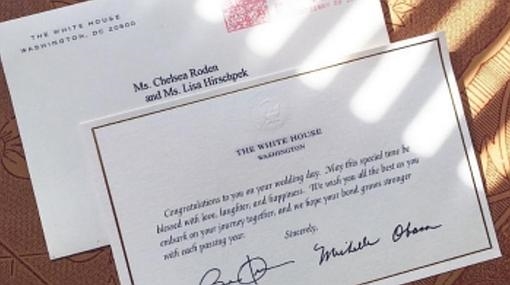 THE WHITE HOUSE
WASHINGTON, DC 20500
Ms. Chelsea Roden
and Ms. Lisa Hirschpek
THE WHITE HOUSE
WASHINGTON
Congratulations to you on your wedding day. May this special time be
blessed with love, laughter, and happiness. We wish you all the best as you
embark on your journey together, and we hope your bond grows stronger
with each passing year.
Sincerely,
Michelle Obama